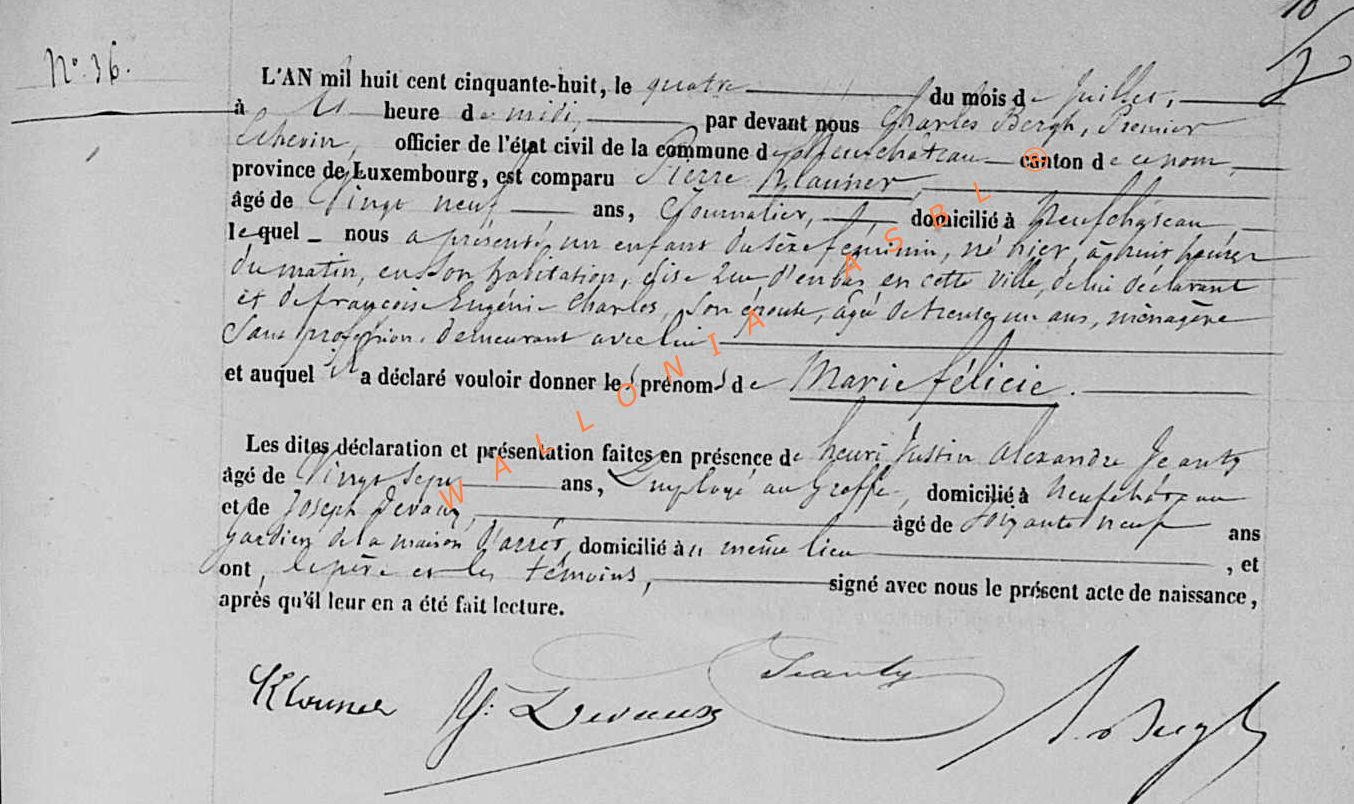 N° 36.
L'AN mil huit cent cinquante-huit, le quatre du mois de Juillet,
à heure de midi, par devant nous Charles Bergh, Premier
Echevin, officier de l'état civil de la commune de Neufchâteau canton de ce nom,
province de Luxembourg, est comparu Pierre Klauner,
âgé de Vingt neuf ans, Journalier, domicilié à Neufchâteau,
lequel nous a présenté un enfant du sèxe féminin, né hier, à huit heures
du matin, en son habitation, sise Rue d'en bas, en cette Ville, de lui déclarant
et de françoise Eugénie Charles, son épouse, agée de trente un ans, ménagère
sans profession, demeurant avec lui
et auquel il a déclaré vouloir donner les prénoms de Marie félicie.
Les dites déclaration et présentation faites en présence de henri Justin Alexandre Jeanty
âgé de Vingt sept ans, Employé au Greffe, domicilié à Neufchâteau
et de Joseph Devaux, âgé de soixante neuf ans
gardien de la maison d'arrêt, domicilié au même lieu, et
ont, le père et les témoins, signé avec nous le présent acte de naissance,
après qu'il leur en a été fait lecture.
Klouner J: Devaux Jeanty Bergh
WALLONIA ASBL ®